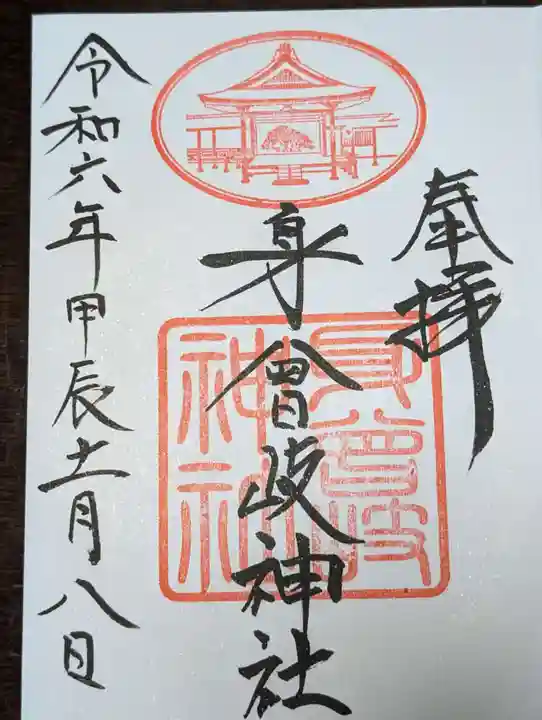 奉拝
身曾岐神社
身曾岐
神社
令和六年甲辰十一月八日